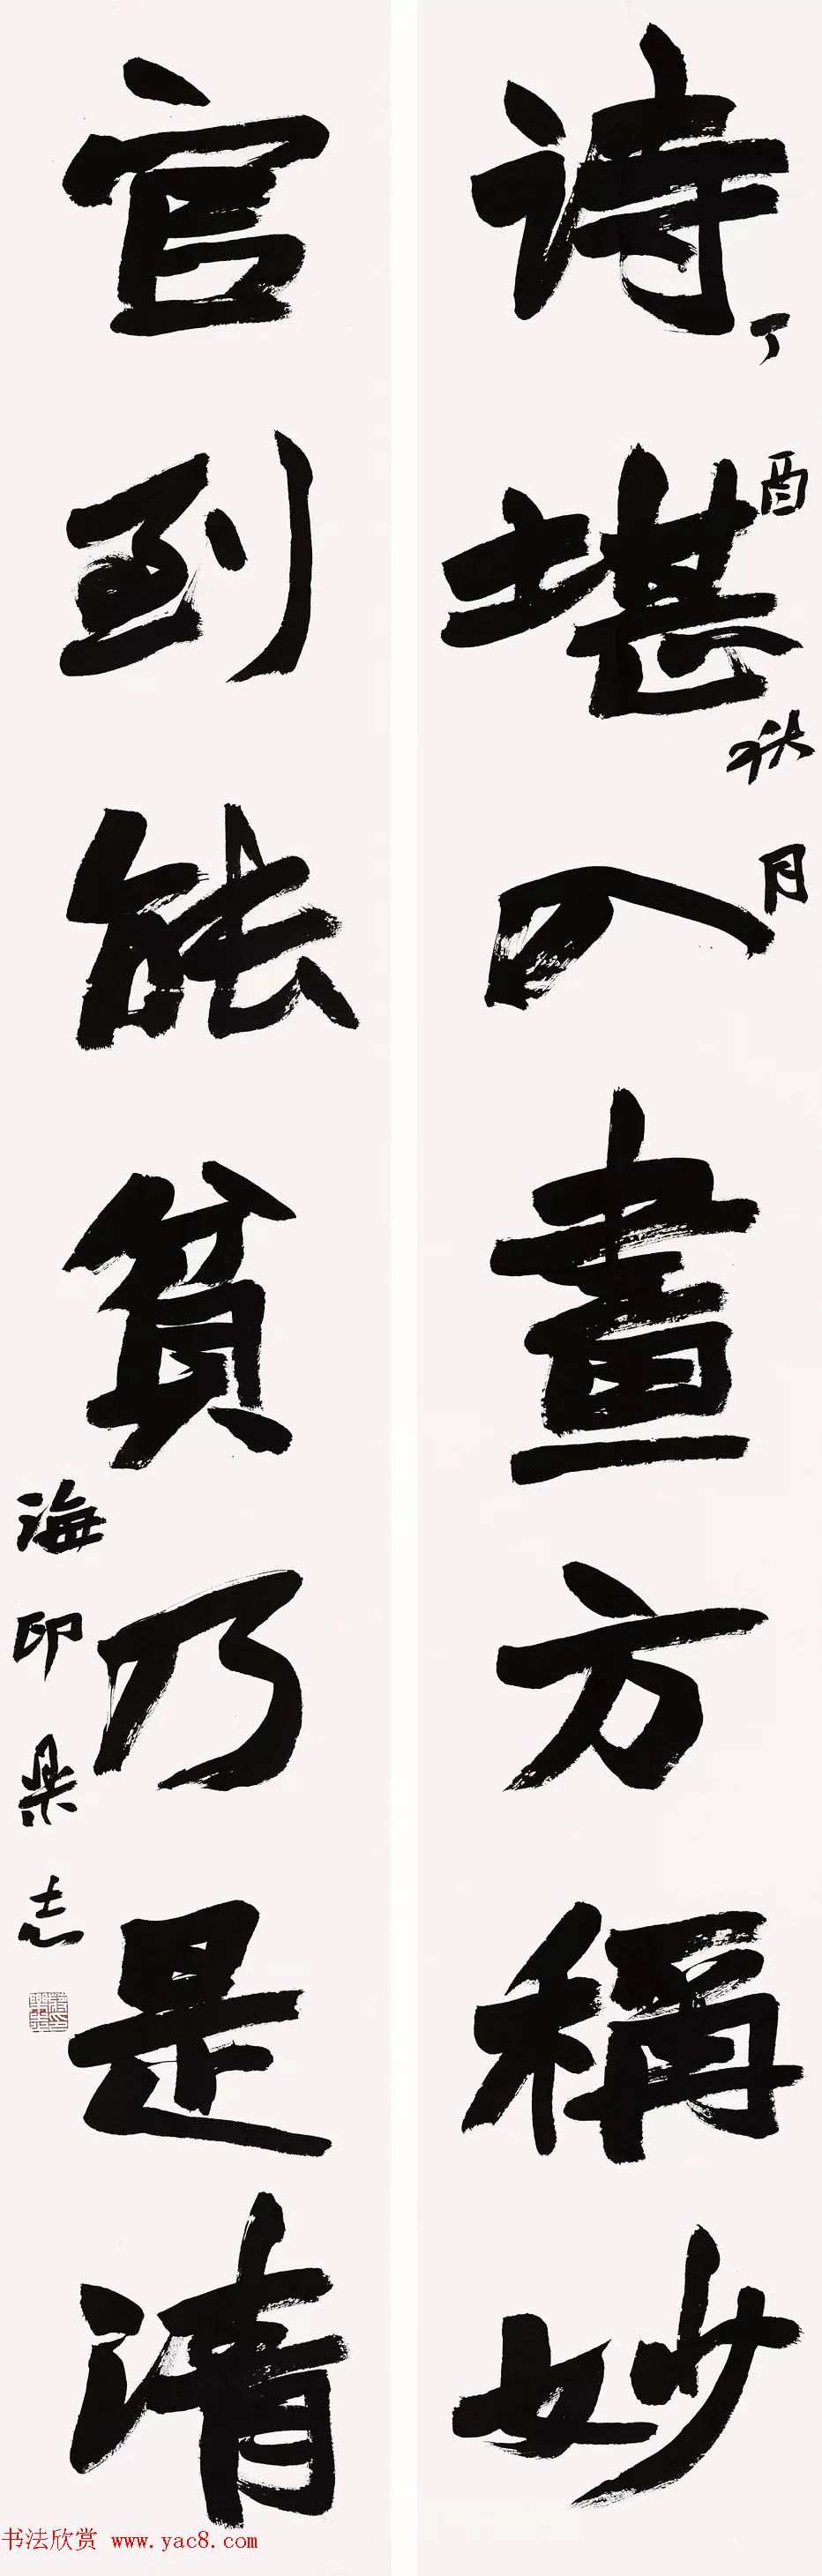 詩堪入畫方稱妙
丁酉秋月
官到能貧乃是清
海印樂志
书法欣赏 www.yac8.com